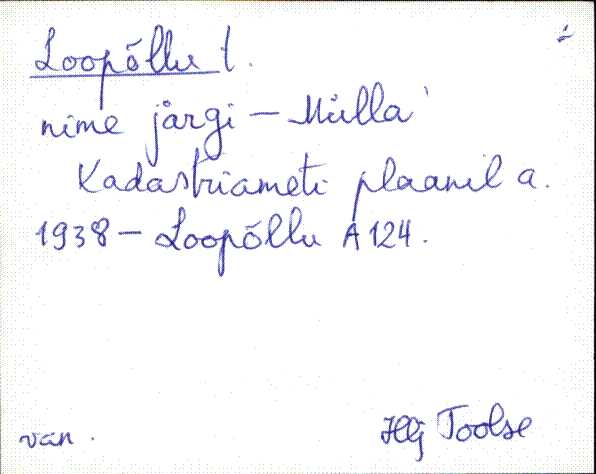 Loopõllu t.
nime järgi – Mülla`
Kadastriameti plaanil a.
1938 – Loopõllu A 124.
van. Hlj Toolse